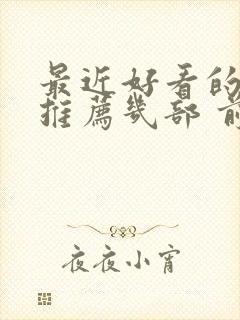 最近好看的
推薦幾部 前
夜夜小宵